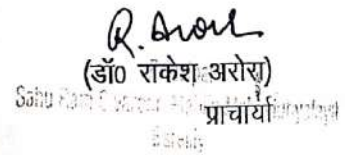 R. Arora
(डॉ0 राकेश अरोरा)
प्राचार्या
Sahu Ram
Bareilly